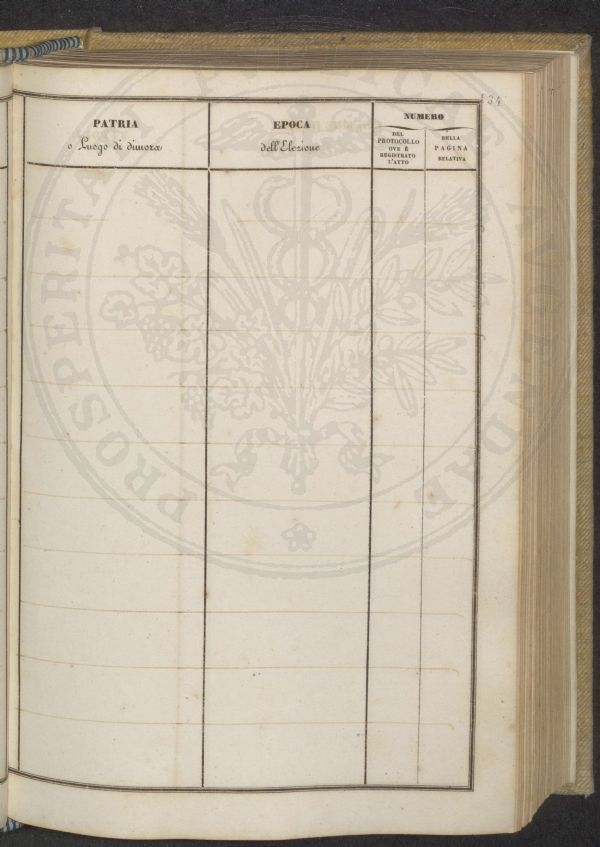 34
PATRIA
o Luogo di dimora
EPOCA
dell'Elezione
NUMERO
DEL
PROTOCOLLO
OVE È
REGISTRATO
L'ATTO
DELLA
PAGINA
RELATIVA
PROSPERITATI PUBLICAE AVGENDAE